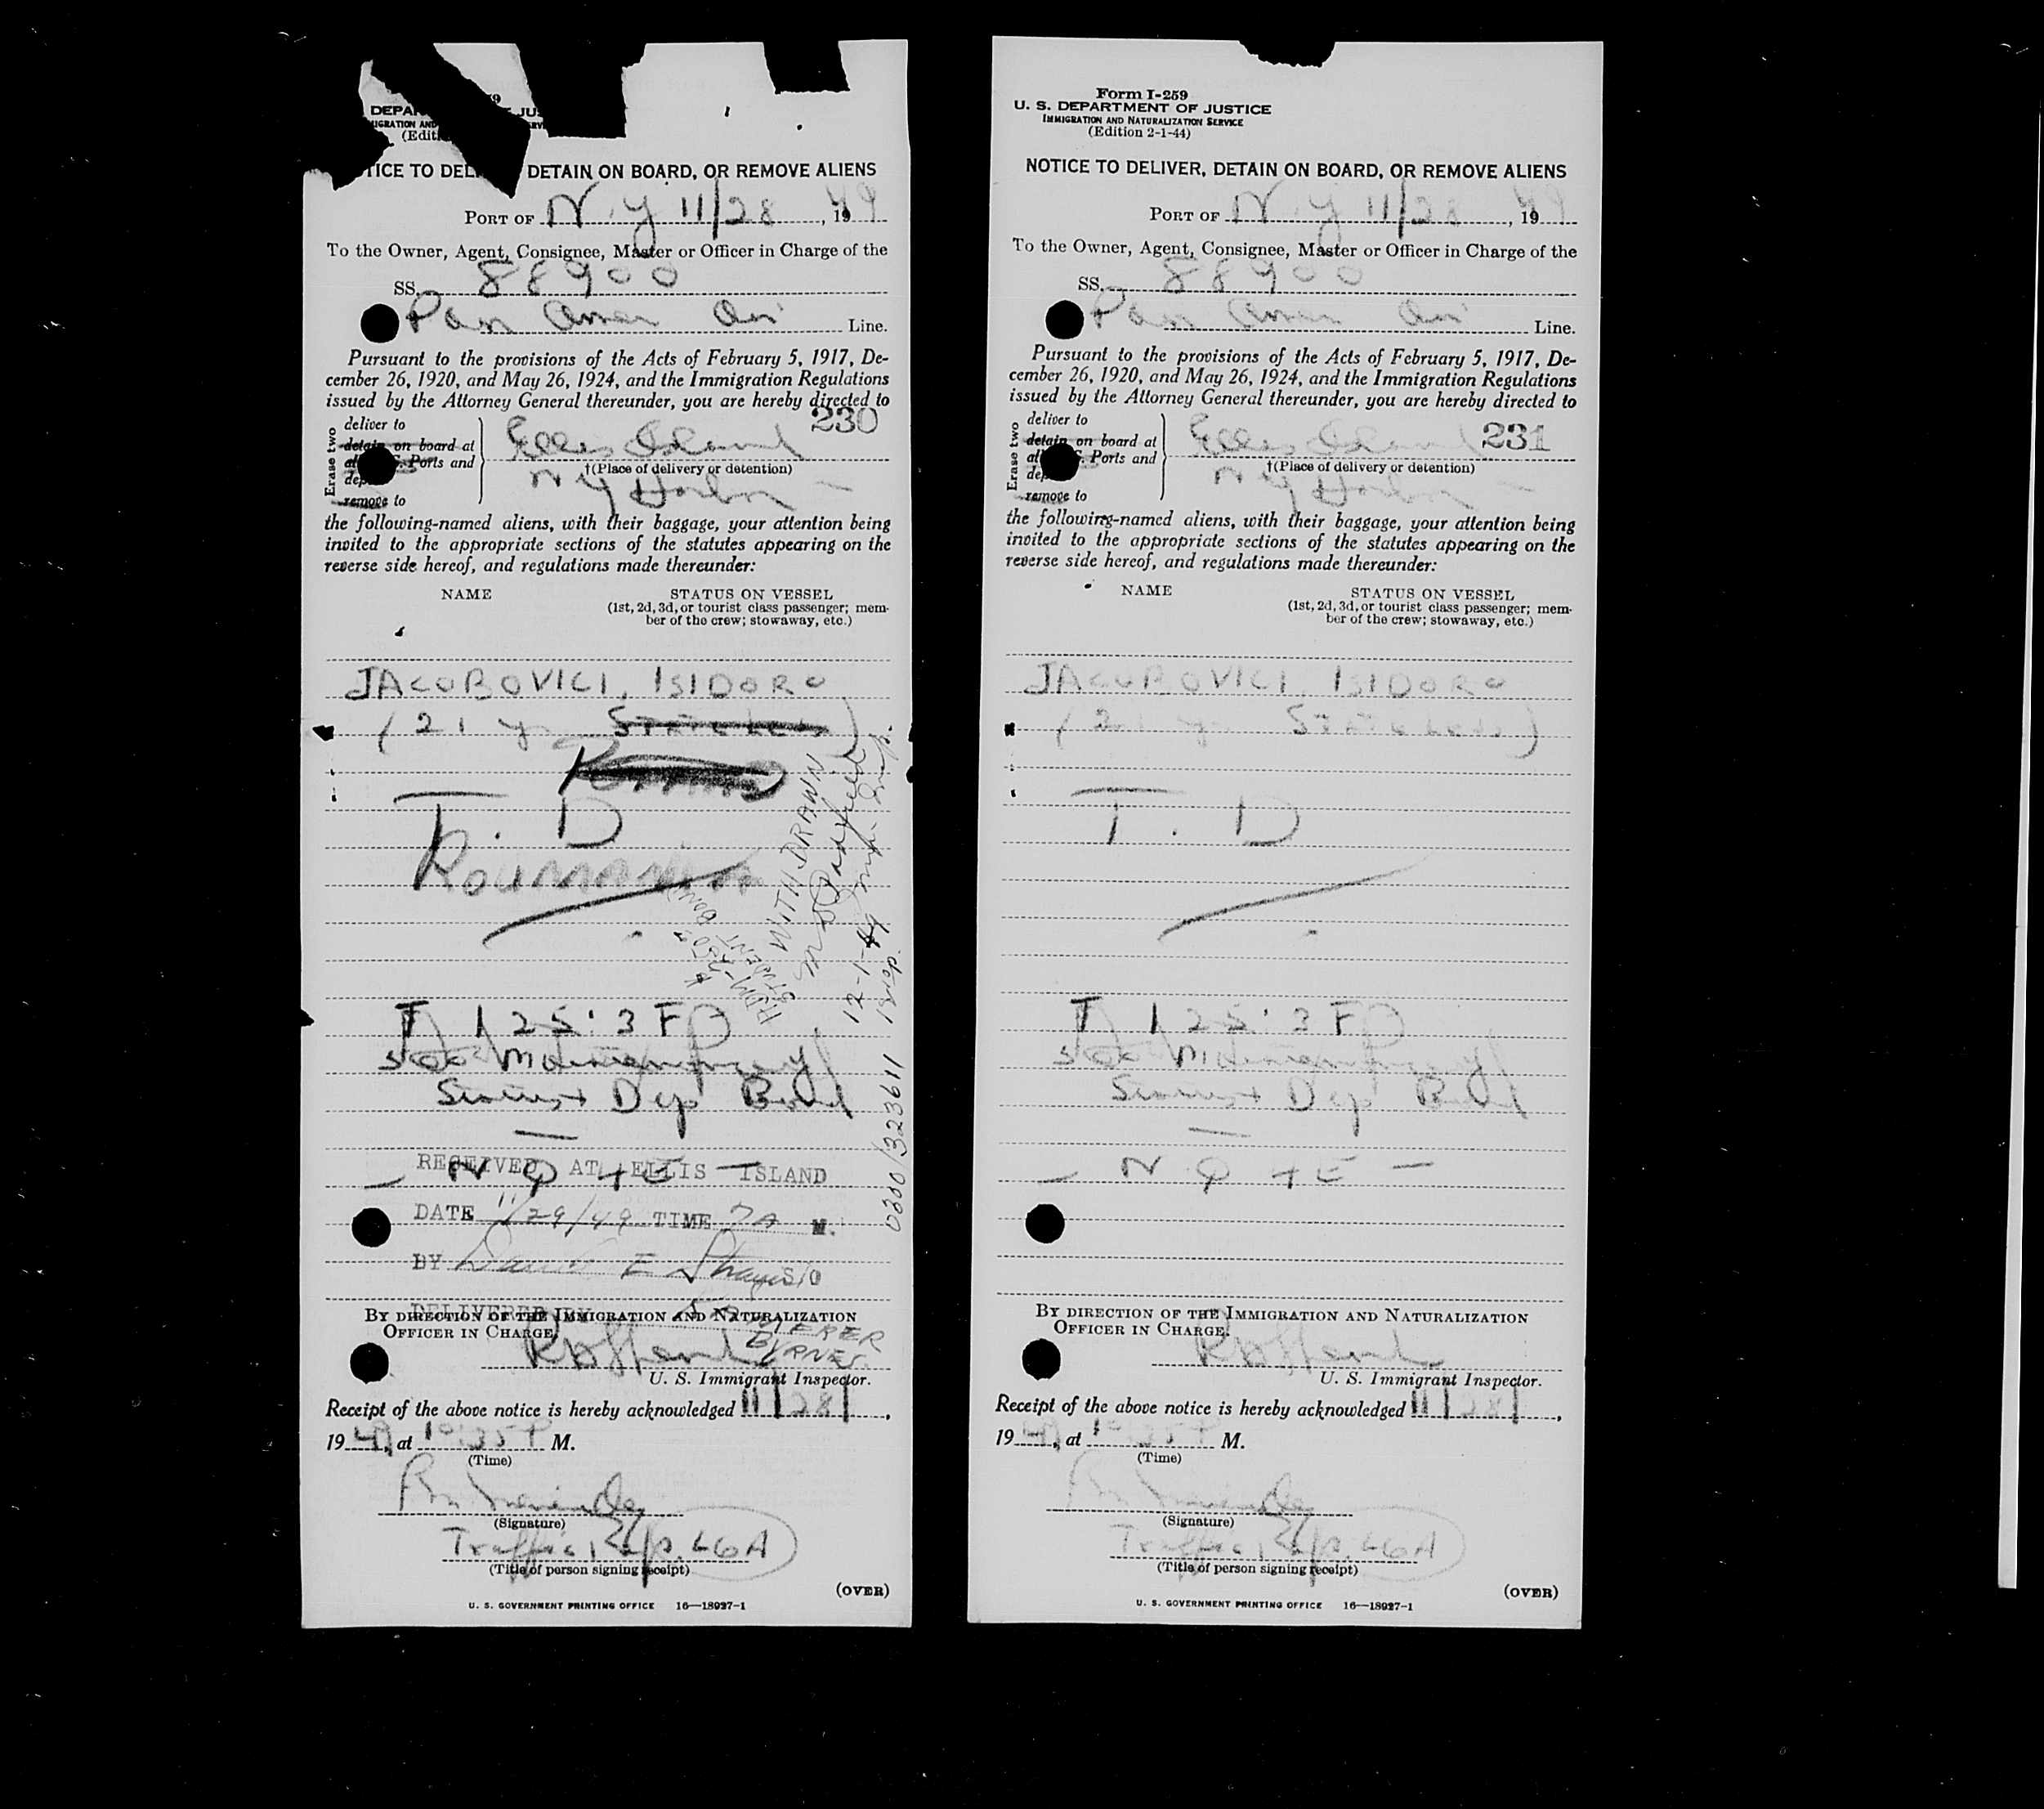 DEPA JUS
(Edit
TICE TO DEL DETAIN ON BOARD, OR REMOVE ALIENS
PORT OF N.Y 11/28, 1949
To the Owner, Agent, Consignee, Master or Officer in Charge of the
SS. 88900
Pan Amer Air Line.
Pursuant to the provisions of the Acts of February 5, 1917, De-
cember 26, 1920, and May 26, 1924, and the Immigration Regulations
issued by the Attorney General thereunder, you are hereby directed to
230
Erase two
deliver to
detain on board at
Ports and
remove to
Ellis Island
†(Place of delivery or detention)
N Y Harbor
the following-named aliens, with their baggage, your attention being
invited to the appropriate sections of the statutes appearing on the
reverse side hereof, and regulations made thereunder:
NAME STATUS ON VESSEL
(1st, 2d, 3d, or tourist class passenger; mem-
ber of the crew; stowaway, etc.)
JACOBOVICI, ISIDORO
(21 y Stateless)
T. D
Roumania
WITHDRAWN
STUDENT BOND
12-1-49
0300/323611
T 125:3F
Student Dep Bond
— N Q + E —
RECEIVED AT ELLIS ISLAND
DATE 11/29/49 TIME 7A M.
BY David E S/O
DELIVERED BY
BYRNES
BY DIRECTION OF THE IMMIGRATION AND NATURALIZATION
OFFICER IN CHARGE.
U. S. Immigrant Inspector.
Receipt of the above notice is hereby acknowledged 11/28/,
1949, at 10:35 P M.
(Time)
(Signature)
Traffic Rep. LGA
(Title of person signing receipt)
(OVER)
U. S. GOVERNMENT PRINTING OFFICE 16—18927-1
Form I-259
U. S. DEPARTMENT OF JUSTICE
IMMIGRATION AND NATURALIZATION SERVICE
(Edition 2-1-44)
NOTICE TO DELIVER, DETAIN ON BOARD, OR REMOVE ALIENS
PORT OF N.Y 11/28, 1949
To the Owner, Agent, Consignee, Master or Officer in Charge of the
SS. 88900
Pan Amer Air Line.
Pursuant to the provisions of the Acts of February 5, 1917, De-
cember 26, 1920, and May 26, 1924, and the Immigration Regulations
issued by the Attorney General thereunder, you are hereby directed to
Erase two
deliver to
detain on board at
Ports and
remove to
Ellis Island 231
†(Place of delivery or detention)
N Y Harbor
the following-named aliens, with their baggage, your attention being
invited to the appropriate sections of the statutes appearing on the
reverse side hereof, and regulations made thereunder:
NAME STATUS ON VESSEL
(1st, 2d, 3d, or tourist class passenger; mem-
ber of the crew; stowaway, etc.)
JACOBOVICI, ISIDORO
(21 y Stateless)
T. D
T 125:3F
Student Dep Bond
— N Q + E —
BY DIRECTION OF THE IMMIGRATION AND NATURALIZATION
OFFICER IN CHARGE.
U. S. Immigrant Inspector.
Receipt of the above notice is hereby acknowledged 11/28/,
1949, at 10:35 P M.
(Time)
(Signature)
Traffic Rep. LGA
(Title of person signing receipt)
(OVER)
U. S. GOVERNMENT PRINTING OFFICE 16—18927-1